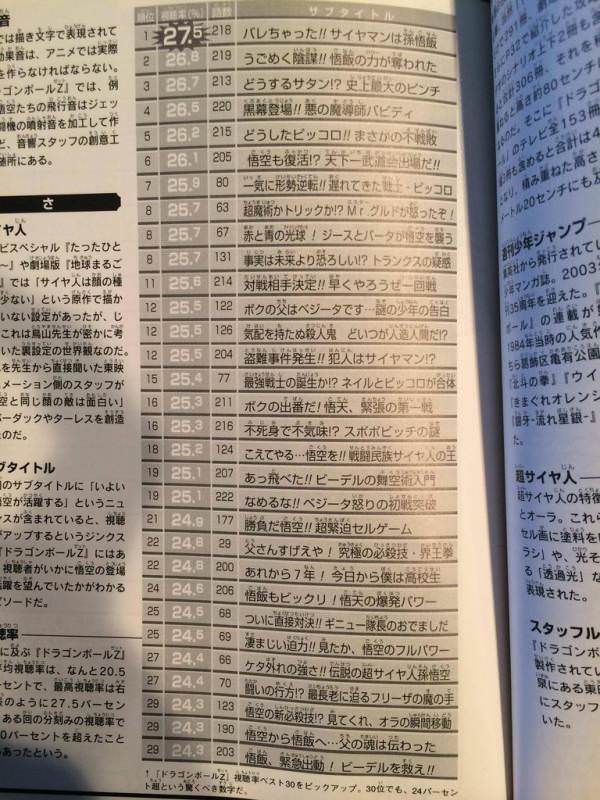 音
では描き文字で表現されて
効果音は、アニメでは実際
を作らなければならない。
ドラゴンボールZ』では、例
悟空たちの飛行音はジェッ
闘機の噴射音を加工して作
ど、音響スタッフの創意工
随所にある。
さ
サイヤ人
ビスペシャル『たったひと
〜』や劇場版『地球まるご
』では「サイヤ人は顔の種
少ない」という原作で描か
いない設定があったが、じ
これは鳥山先生が密かに考
いた裏設定の世界観なのだ。
を先生から直接聞いた東映
メーション側のスタッフが
空と同じ顔の敵は面白い」
バーダックやターレスを創造
たのだ。
サブタイトル
回のサブタイトルに「いよい
悟空が活躍する」というニュ
スが含まれていると、視聴
アップするというジンクス
『ドラゴンボールZ』にはあ
視聴者がいかに悟空の登場
活躍を望んでいたかがわかる
ピソードだ。
視聴率
に及ぶ『ドラゴンボールZ』
平均視聴率は、なんと20.5
ーセントで、最高視聴率は右
表のように27.5パーセン
ある回の分刻みの視聴率で
0パーセントを超えたこと
あったという。
順位 視聴率(%) 話数 サブタイトル
1 27.5 218 バレちゃった!! サイヤマンは孫悟飯
2 26.8 219 うごめく陰謀!! 悟飯の力が奪われた
3 26.7 213 どうするサタン!? 史上最大のピンチ
4 26.5 220 黒幕登場!! 悪の魔導師バビディ
5 26.2 215 どうしたピッコロ!! まさかの不戦敗
6 26.1 205 悟空も復活!? 天下一武道会出場だ!!
7 25.9 80 一気に形勢逆転!! 遅れてきた戦士・ピッコロ
8 25.7 63 超魔術かトリックか!? Mr.グルドが怒ったぞ!
8 25.7 67 赤と青の光球! ジースとバータが悟空を襲う
8 25.7 131 事実は未来より恐ろしい!? トランクスの疑惑
11 25.6 214 対戦相手決定!! 早くやろうぜ一回戦
12 25.5 122 ボクの父はベジータです…謎の少年の告白
12 25.5 126 気配を持たぬ殺人鬼 どいつが人造人間だ!?
12 25.5 204 盗難事件発生!! 犯人はサイヤマン!?
15 25.4 77 最強戦士の誕生か!? ネイルとピッコロが合体
16 25.3 211 ボクの出番だ! 悟天、緊張の第一戦
16 25.3 216 不死身で不気味!? スポポビッチの謎
18 25.2 124 こえてやる…悟空を!! 戦闘民族サイヤ人の王
19 25.1 207 あっ飛べた!! ビーデルの舞空術入門
19 25.1 222 なめるな!! ベジータ怒りの初戦突破
21 24.9 177 勝負だ悟空!! 超緊迫セルゲーム
22 24.8 29 父さんすげえや! 究極の必殺技・界王拳
22 24.8 200 あれから7年! 今日から僕は高校生
24 24.6 206 悟飯もビックリ! 悟天の爆発パワー
25 24.5 68 ついに直接対決!! ギニュー隊長のおでましだ
25 24.5 69 凄まじい迫力!! 見たか、悟空のフルパワー
27 24.4 66 ケタ外れの強さ!! 伝説の超サイヤ人孫悟空
27 24.4 70 闘いの行方!? 最長老に迫るフリーザの魔の手
29 24.3 123 悟空の新必殺技!? 見てくれ、オラの瞬間移動
29 24.3 190 悟空から悟飯へ…父の魂は伝わった
29 24.3 203 悟飯、緊急出動! ビーデルを救え!!
↑『ドラゴンボールZ』視聴率ベスト30をピックアップ。30位でも、24パーセン
ト超という驚くべき数字だ。
のシナリオ上下2冊も
合計306冊。それを積
ると高さ約80センチ
るのだ。そこに『ドラ
』のテレビ全153冊
1冊も含めると合計は4
となり、積み重ねた高さ
ートル20センチにも及
週刊少年ジャンプ
集英社から発行されてい
少年マンガ誌。2003
刊35周年を迎えた。『
ボール』の連載が
1984年当時の人気作
ちら葛飾区亀有公園
『北斗の拳』『ウイ
『きまぐれオレンジ
『銀牙-流れ星銀-』
た。
超サイヤ人
超サイヤ人の特徴
とオーラ。これら
セル画に塗料を
ラシ」や、光そ
る「透過光」な
表現された。
スタッフル
『ドラゴンボ
製作されてい
泉にある東
にスタッフ
いた。